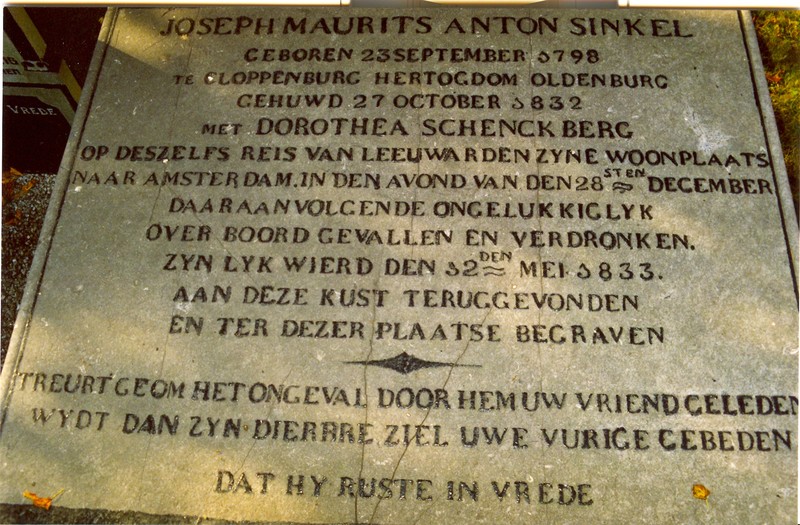 JOSEPH MAURITS ANTON SINKEL
GEBOREN 23 SEPTEMBER 1798
TE CLOPPENBURG HERTOGDOM OLDENBURG
GEHUWD 27 OCTOBER 1832
MET DOROTHEA SCHENCKBERG
OP DESZELFS REIS VAN LEEUWARDEN ZYNE WOONPLAATS
NAAR AMSTERDAM. IN DEN AVOND VAN DEN 28STEN DECEMBER
DAARAANVOLGENDE ONGELUKKIGLYK
OVER BOORD GEVALLEN EN VERDRONKEN.
ZYN LYK WIERD DEN 12DEN MEI 1833.
AAN DEZE KUST TERUGGEVONDEN
EN TER DEZER PLAATSE BEGRAVEN
TREURT GE OM HET ONGEVAL DOOR HEM UW VRIEND GELEDEN
WYDT DAN ZYN DIERBRE ZIEL UWE VURIGE GEBEDEN
DAT HY RUSTE IN VREDE
VREDE